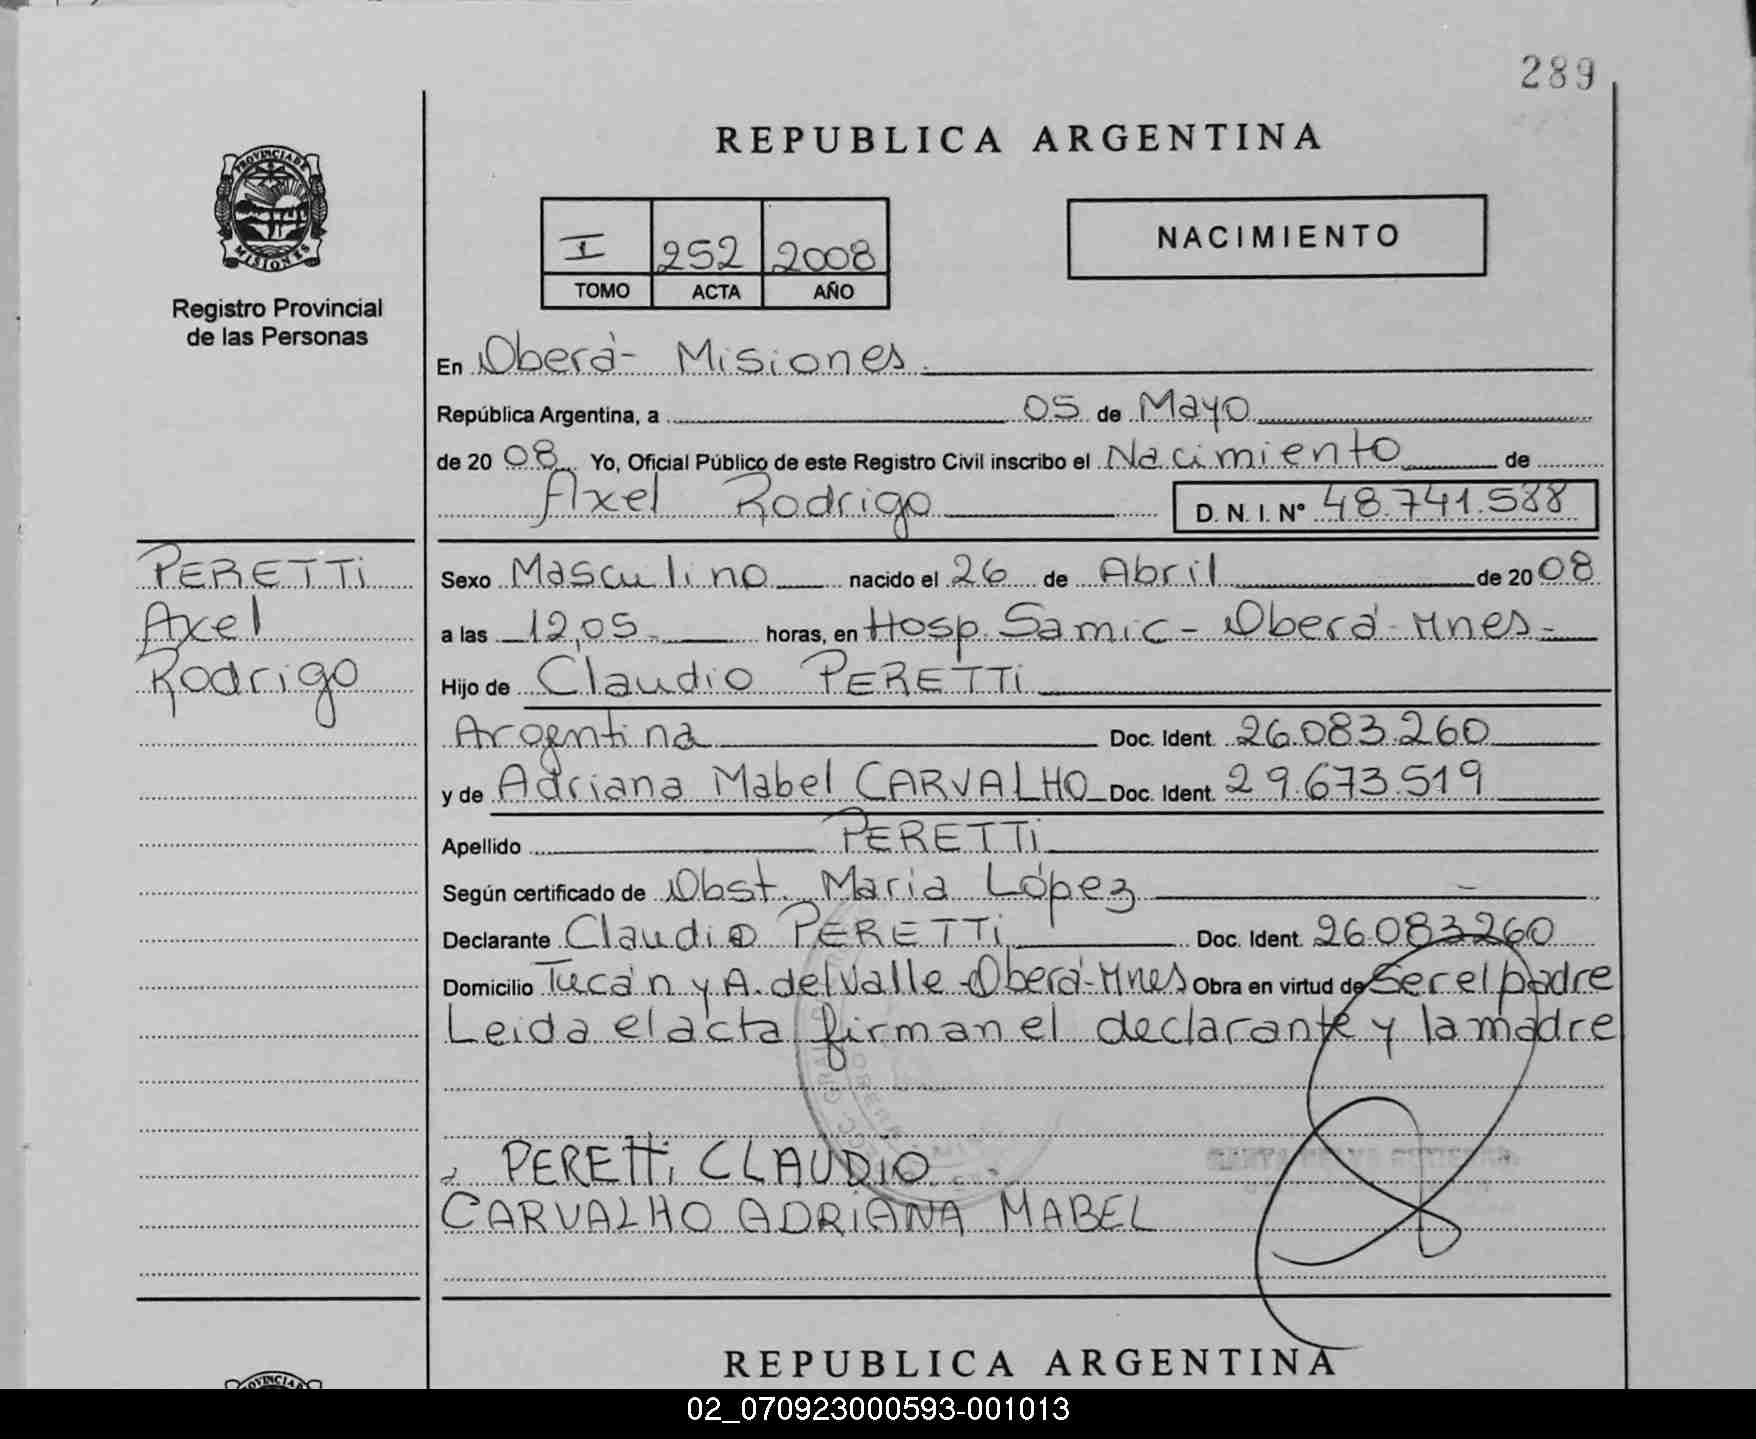 289
REPUBLICA ARGENTINA
PROVINCIA DE
MISIONES
Registro Provincial
de las Personas
I 252 2008
TOMO ACTA AÑO
NACIMIENTO
En Oberá - Misiones.
República Argentina, a 05 de Mayo
de 20 08 Yo, Oficial Público de este Registro Civil inscribo el Nacimiento de
Axel Rodrigo D. N. I. N° 48.741.588
PERETTi
Axel
Rodrigo
Sexo Masculino nacido el 26 de Abril de 20 08
a las 12,05 horas, en Hosp. Samic - Oberá - Mnes -
Hijo de Claudio PERETTi
Argentina Doc. Ident. 26.083.260
y de Adriana Mabel CARVALHO Doc. Ident. 29.673.519
Apellido PERETTi
Según certificado de Obst. Maria López
Declarante Claudio PERETTi Doc. Ident. 26.083260
Domicilio Tucán y A. del Valle - Oberá - Mnes Obra en virtud de Ser el padre
Leida el acta firman el declarante y la madre
PERETTi CLAUDIO
CARVALHO ADRIANA MABEL
REPUBLICA ARGENTINA
02_070923000593-001013